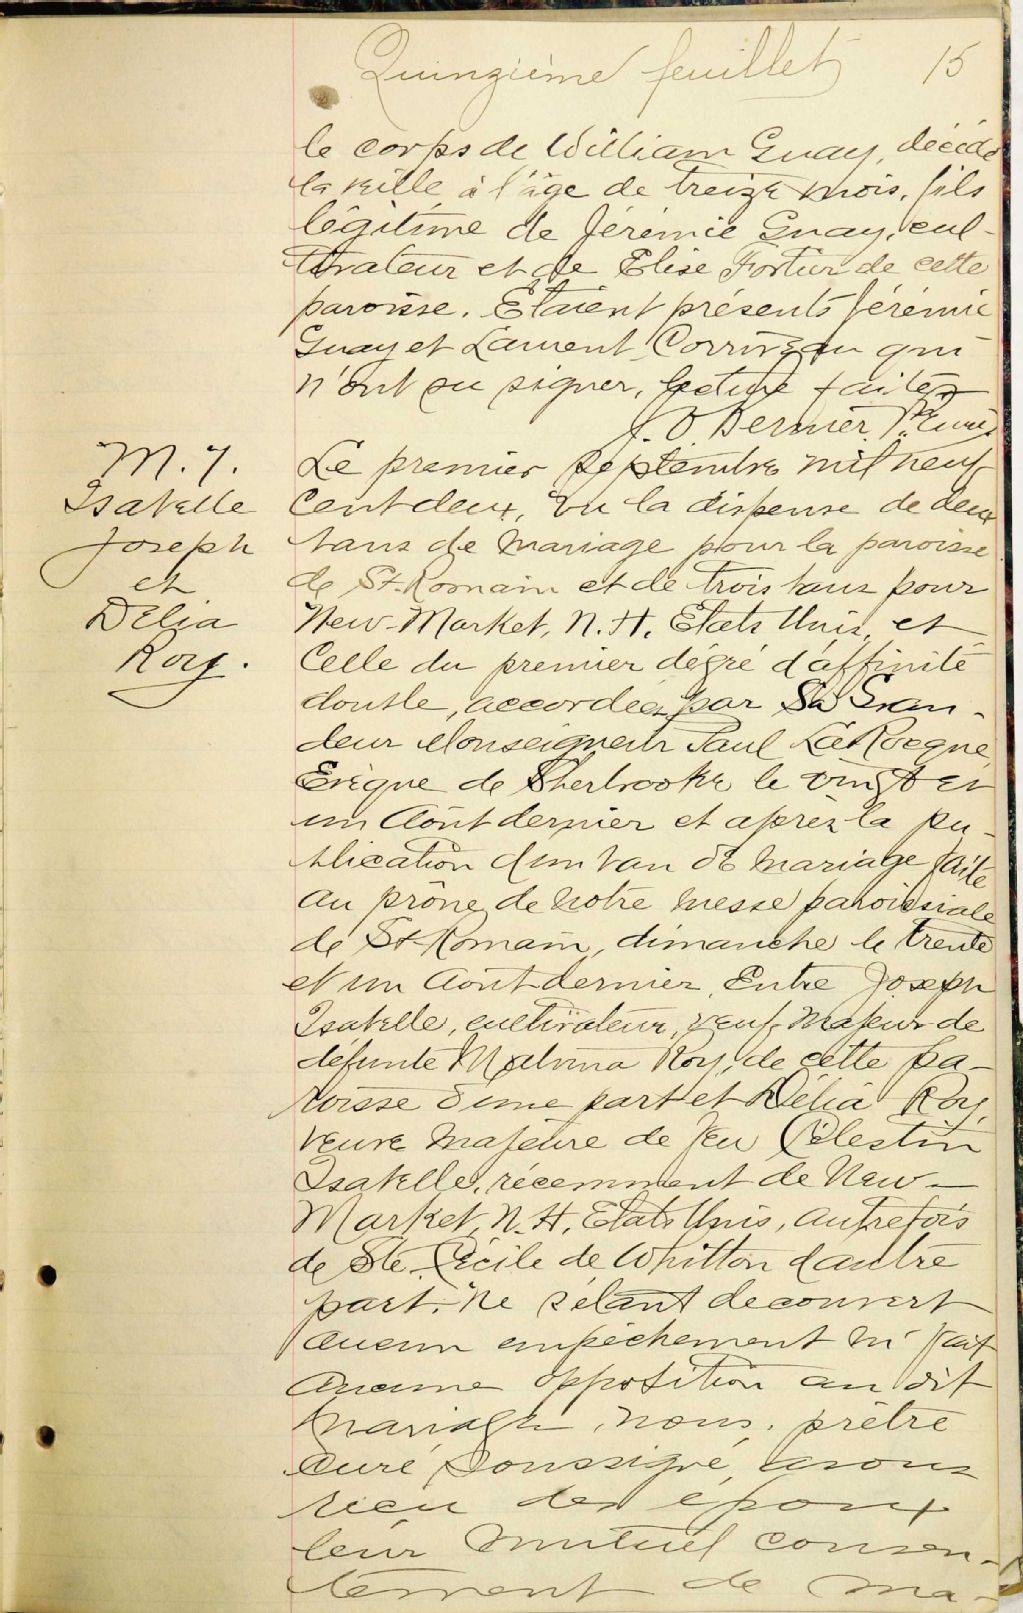 Quinzième feuillet 15
le corps de William Guay, décédé
la veille à l'âge de treize mois, fils
légitime de Jérémie Guay, cul-
tivateur et de Elise Fortier de cette
paroisse. Etaient présents Jérémie
Guay et Laurent Corriveau qui
n'ont su signer, lecture faite
J. O. Bernier Ptre Curé
M. 7.
Isabelle
Joseph
et
Délia
Roy.
Le premier septembre mil neuf
cent deux, vu la dispense de deux
bans de mariage pour la paroisse
de St-Romain et de trois bans pour
New-Market, N. H. Etats Unis, et
celle du premier dégré d'affinité
double, accordées par Sa Gran-
deur Monseigneur Paul LaRocque
Evêque de Sherbrooke le vingt et
un Août dernier et après la pu-
blication d'un ban de mariage faite
au prône de notre messe paroissiale
de St-Romain, dimanche le trente
et un Août dernier, Entre Joseph
Isabelle, cultivateur, veuf majeur de
défunte Malvina Roy, de cette pa-
roisse d'une part et Délia Roy,
veuve majeure de feu Célestin
Isabelle, récemment de New-
Market, N. H. Etats Unis, autrefois
de Ste. Cécile de Whitton d'autre
part. Ne s'étant decouvert
aucun empêchement ni fait
aucune opposition au dit
mariage, nous, prêtre
curé soussigné, avons
reçu des époux
leur mutuel consen-
tement de ma-